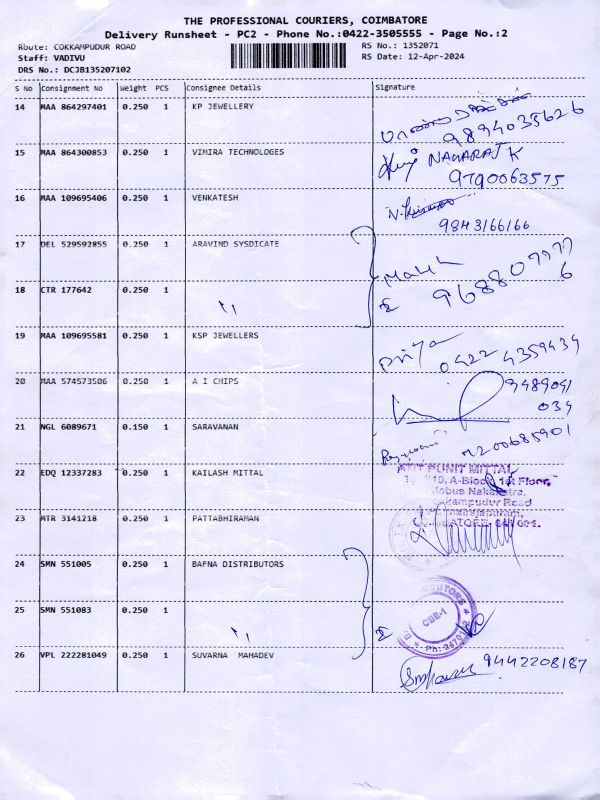 THE PROFESSIONAL COURIERS, COIMBATORE
Delivery Runsheet - PC2 - Phone No.:0422-3505555 - Page No.:2
Route: COKKAMPUDUR ROAD RS No.: 1352071
Staff: VADIVU RS Date: 12-Apr-2024
DRS No.: DCJB135207102
S No Consignment No Weight PCS Consignee Details Signature
14 MAA 864297401 0.250 1 KP JEWELLERY
9894035626
15 MAA 864300853 0.250 1 VIMIRA TECHNOLOGES NAGARAJ K
9790063575
16 MAA 109695406 0.250 1 VENKATESH
9843166166
17 DEL 529592855 0.250 1 ARAVIND SYSDICATE
18 CTR 177642 0.250 1
19 MAA 109695581 0.250 1 KSP JEWELLERS
Priya 0422 4359439
20 MAA 574573506 0.250 1 A I CHIPS 9489041
034
21 NGL 6089671 0.150 1 SARAVANAN 7200685901
22 EDQ 12337283 0.250 1 KAILASH MITTAL PUNIT MITTAL
10, A-Block, 1st Floor,
Road
23 MTR 3141218 0.250 1 PATTABHIRAMAN
24 SMN 551005 0.250 1 BAFNA DISTRIBUTORS
25 SMN 551083 0.250 1 CBE-1
26 VPL 222281049 0.250 1 SUVARNA MAHADEV 9442208187